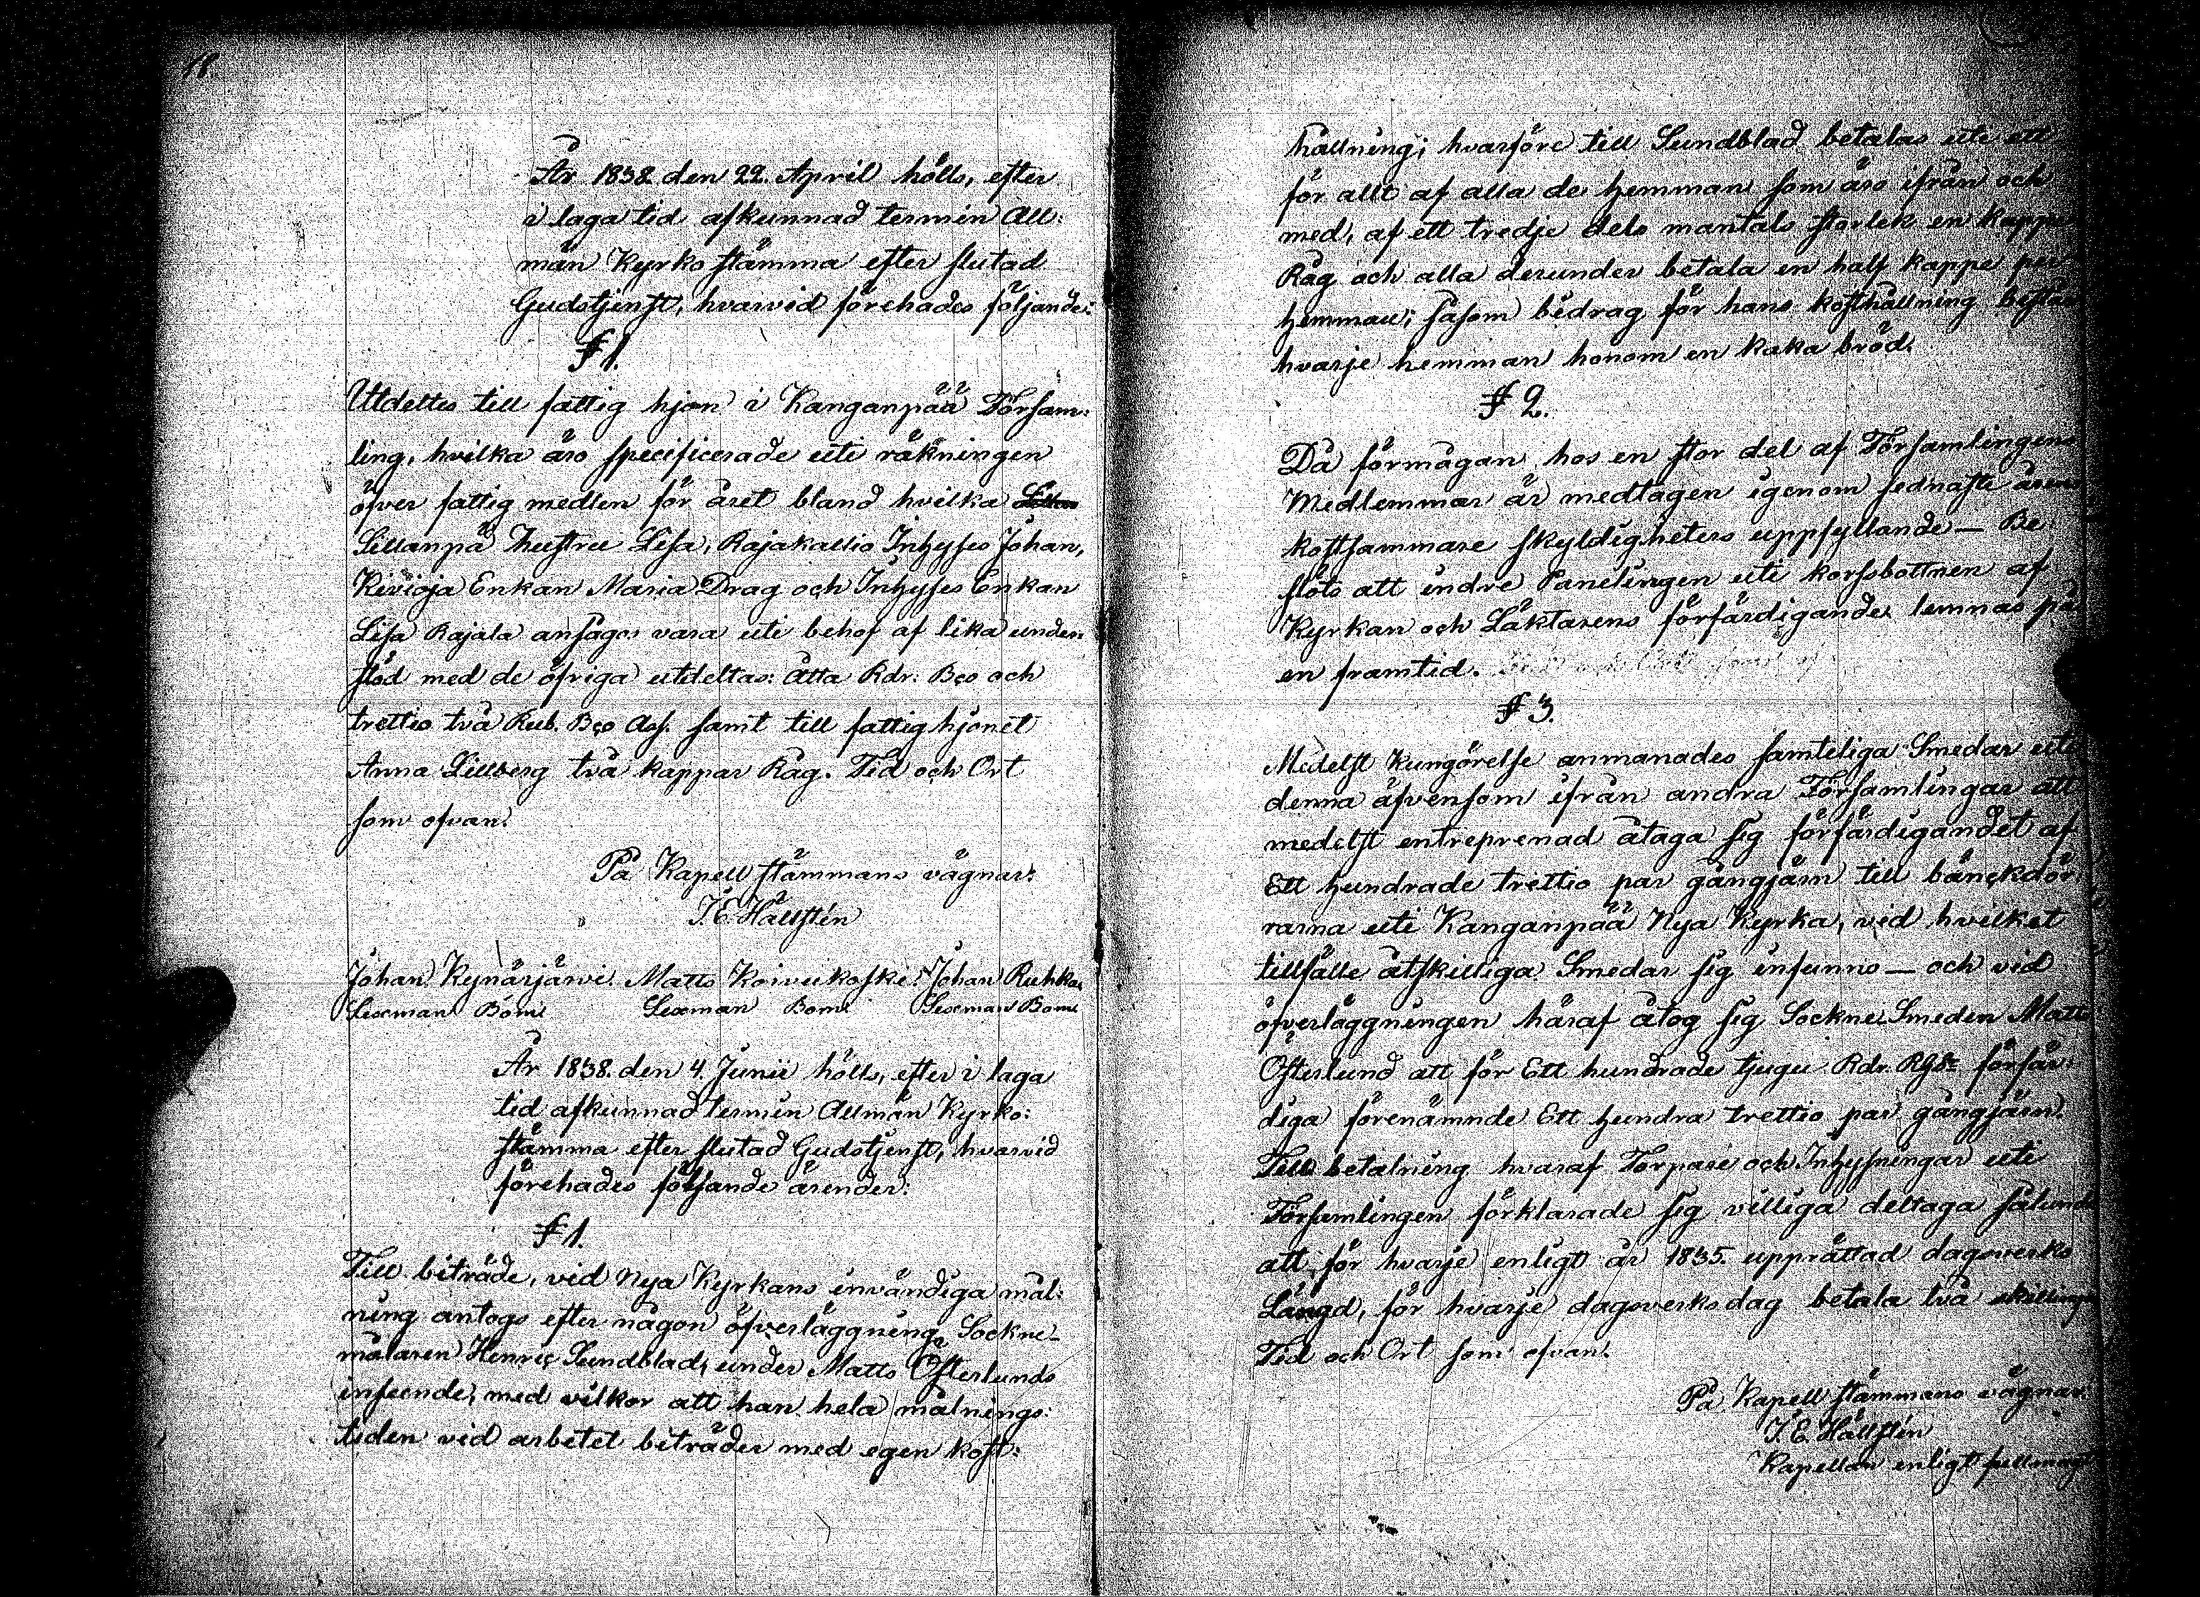 18
År 1838 den 22. April hölls, efter
i laga tid afkunnad termin All:
män Kyrko stämma efter slutad
Gudstjenst, hvarvid förehades följande:
§ 1.
Utdeltes till fattig hjon i Kanganpää Försam:
ling, hvilka äro specificerade uti räkningen
öfver fattig medlen för året bland hvilka
Sillanpä Hustru Lisa, Rajakallio Inhyses Johan,
Kivioja Enkan Maria Drag och Inhyses Enkan
Lisa Rajala ansågos vara uti behof af lika under:
stöd med de öfriga utdeltas: åtta Rdr: Bco och
trettio två Rub. Bco Ass. samt till fattig hjonet
Anna Lillberg två kappar Råg. Tid och Ort
som ofvan.
På Kapell stämmans vägnar:
J. E. Hällstén
Johan Kynärjärvi. Matts Koivukoski. Johan Ruhka
Sexman Bom: Sexman Bom: Sexman Bom:
År 1838. den 4. Junii hölls, efter i laga
tid afkunnad termin Allmän Kyrko:
stämma efter slutad Gudstjenst, hvarvid
förehades följande ärender:
§ 1.
Till biträde, vid Nya Kyrkans invändiga mål:
ning antogs efter någon öfverläggning Sockne-
målaren Henric Sundblad, under Matts Österlunds
inseende, med vilkor att han hela målnings:
tiden vid arbetet biträder med egen kost:
hållning; hvarföre till Sundblad betalas uti ett
för allt af alla de hemman som äro ifrån och
med, af ett tredje dels mantals storlek en kappe
Råg och alla derunder betala en half kappe per
hemman; såsom bidrag för hans kosthållning bestås
hvarje hemman honom en kaka bröd.
§ 2.
Då förmågan hos en stor del af Församlingens
Medlemmar är medtagen igenom sednaste årens
kostsammare skyldigheters uppfyllande — Be
slöts att indre Panelingen uti korsbottnen af
Kyrkan och Läktarens förfärdigande lemnas på
en framtid.
§ 3.
Medelst kungörelse anmanades samteliga Smedar uti
denna äfvensom ifrån andra Församlingar att
medelst entreprenad åtaga sig förfärdigandet af
Ett hundrade trettio par gångjärn till bänckdör
rarna uti Kanganpää Nya Kyrka, vid hvilket
tillfälle åtskilliga Smedar sig infunno — och vid
öfverläggningen häraf åtog sig Sockne Smeden Matts
Österlund att för Ett hundrade tjugu Rdr. Rgs förfär:
diga förenämnde Ett hundra trettio par gångjärn.
Till betalning hvaraf Torpare och Inhysningar uti
Församlingen förklarade sig villiga deltaga sålunda
att för hvarje enligt år 1835. upprättad dagsverks
Längd, för hvarje dagsverks dag betala två skillingar
Tid och Ort som ofvan.
På Kapell stämmans vägnar.
J. E. Hällstén
Kapellan enligt fullmagt